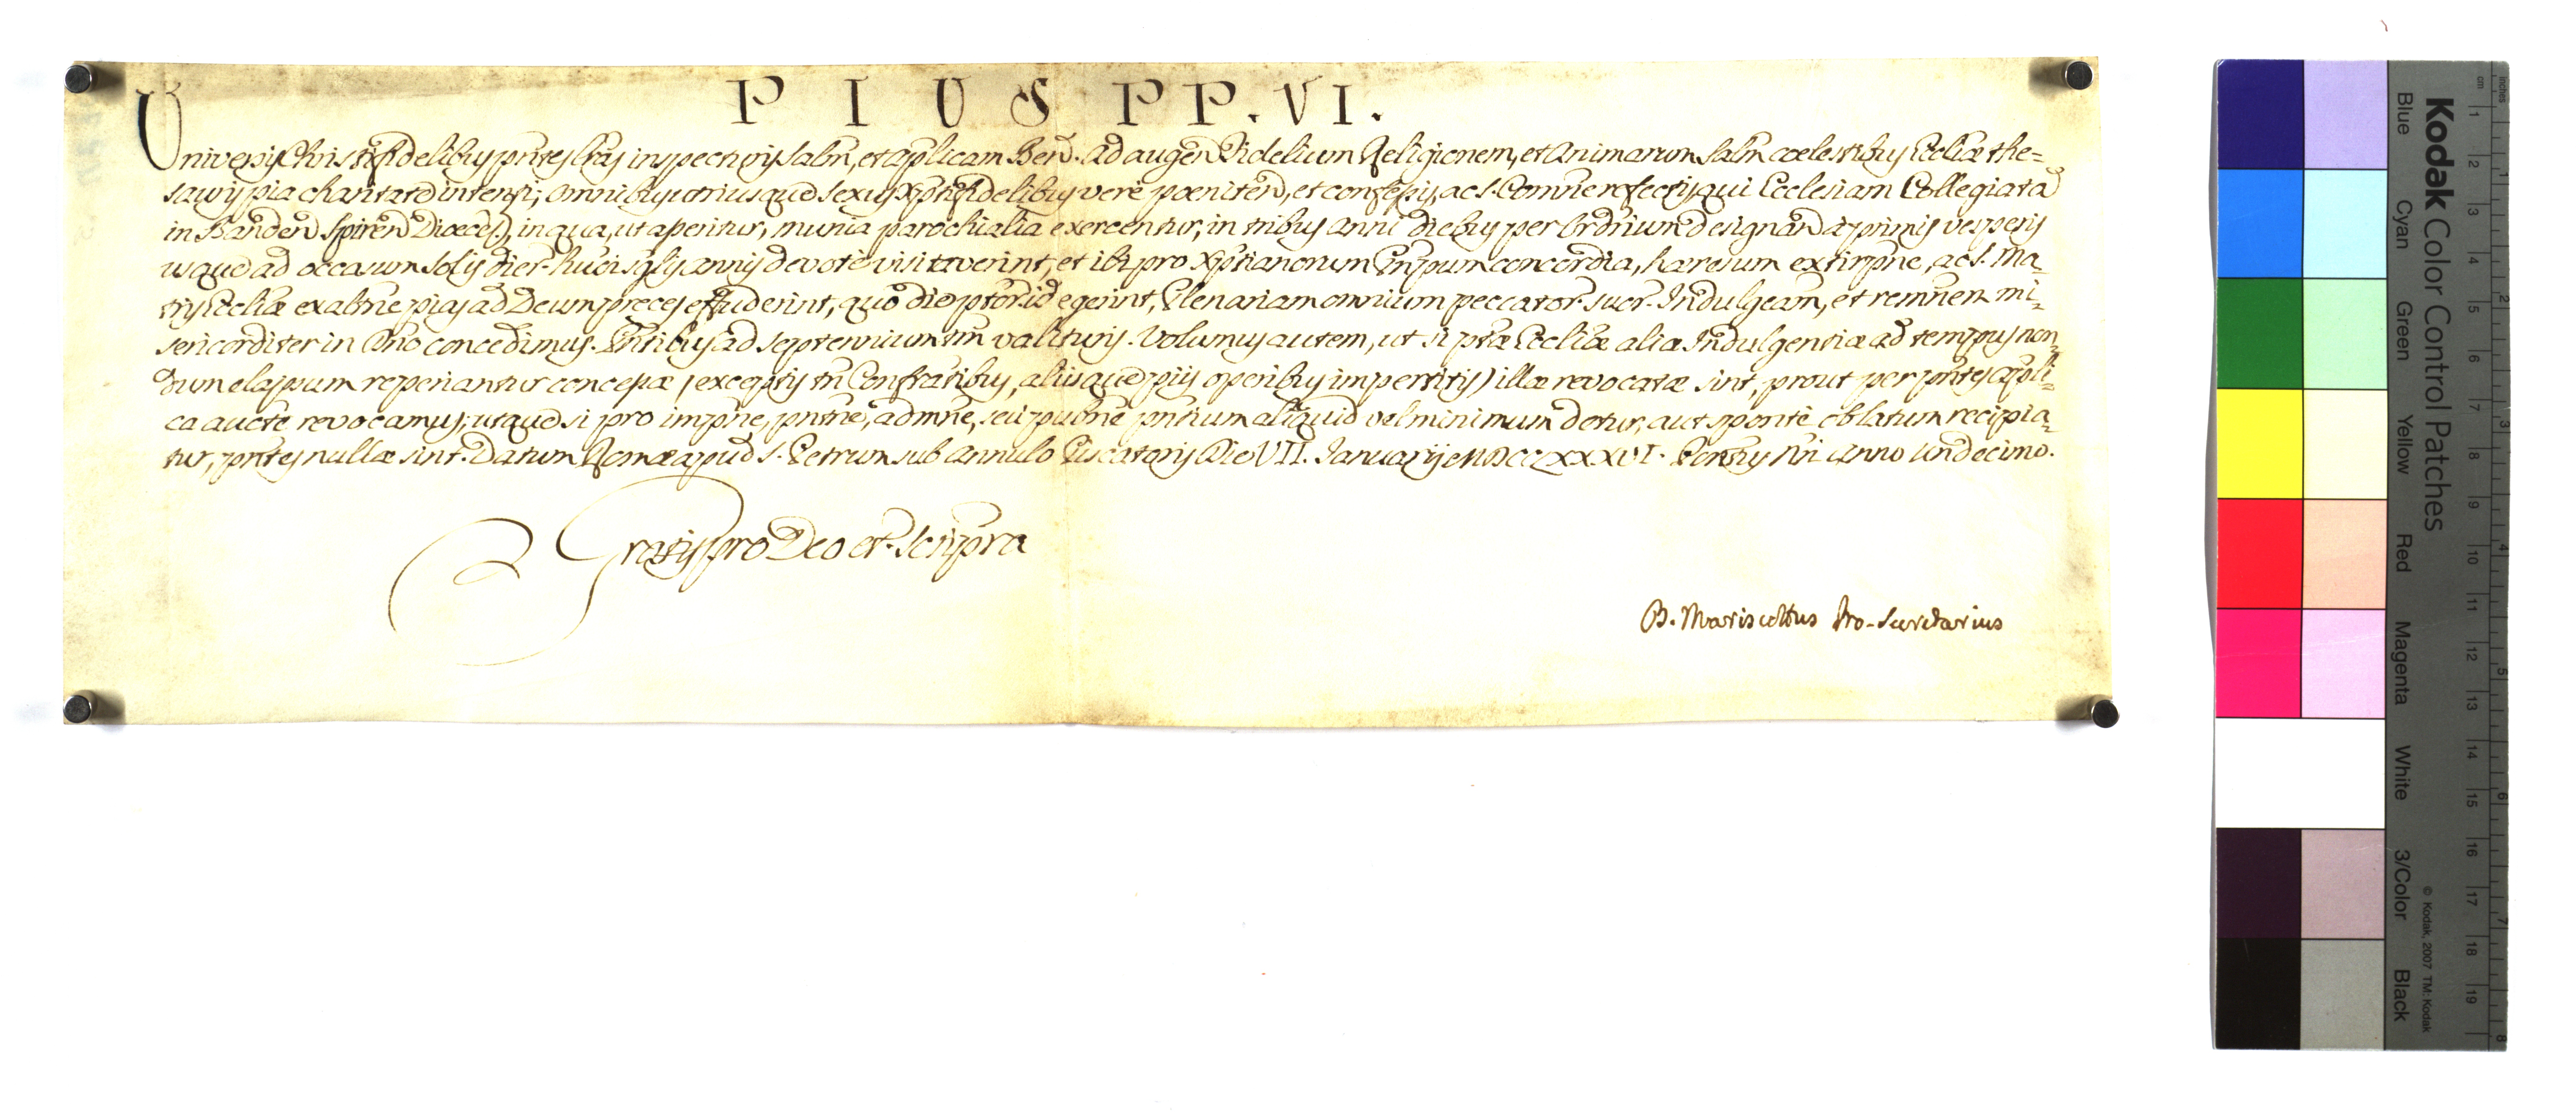 PIUS PP. VI.
Universis Christifidelibus pñtes lras inspecturis salm, et aplicam Bend. Ad augend Fidelium Religionem, et Animarum salm coelestibus Eccliæ the=
sauris pia charitate intenti; omnibus utriusque sexus Xptifidelibus verè poeniten, et confessis, ac S. Comñe refectis, qui Ecclesiam Collegiatam
in Banden Spiren Dioeces, in qua, ut asseritur, munia parochialia exercentur, in tribus anni diebus per Ordrium designan à primis vesperis
usque ad occasum solis dier. hujusm̃di sglis annis devotè visitaverint, et ibi pro Xptianorum Pnpum concordia, hæresum extirpñe, ac S. Ma=
tris Ecclæ exaltñe pias ad Deum preces effuderint, quo die ptor. id egerint, Plenariam omnium peccator. suor. Indulgeam, et remñem mi=
sericorditer in Dno concedimus. Pntibus ad septennium tm valituris. Volumus autem, ut si ptæ Ecclæ aliæ Indulgentiæ ad tempus non
dum elapsum reperiantur concessæ (exceptis tñ Confratibus, aliisque piis operibus impertitis) illæ revocatæ sint, prout per pntes apli=
ca aucte revocamus; utque si pro impñe, pntñe, admñe, seu publñe pntium aliquid vel minimum detur, aut sponte oblatum recipia=
tur, pntes nullæ sint. Datum Romæ apud S. Petrum sub Annulo Piscatoris Die VII. Januarij MDCCLXXXVI. Pontus Nri Anno Undecimo.
Gratis pro Deo et Scripra
B. Mariscottus Pro-Secretarius
Kodak Color Control Patches
Blue Cyan Green Yellow Red Magenta White 3/Color Black
© Kodak, 2007 TM: Kodak
inches
1 2 3 4 5 6 7 8
cm
1 2 3 4 5 6 7 8 9 10 11 12 13 14 15 16 17 18 19